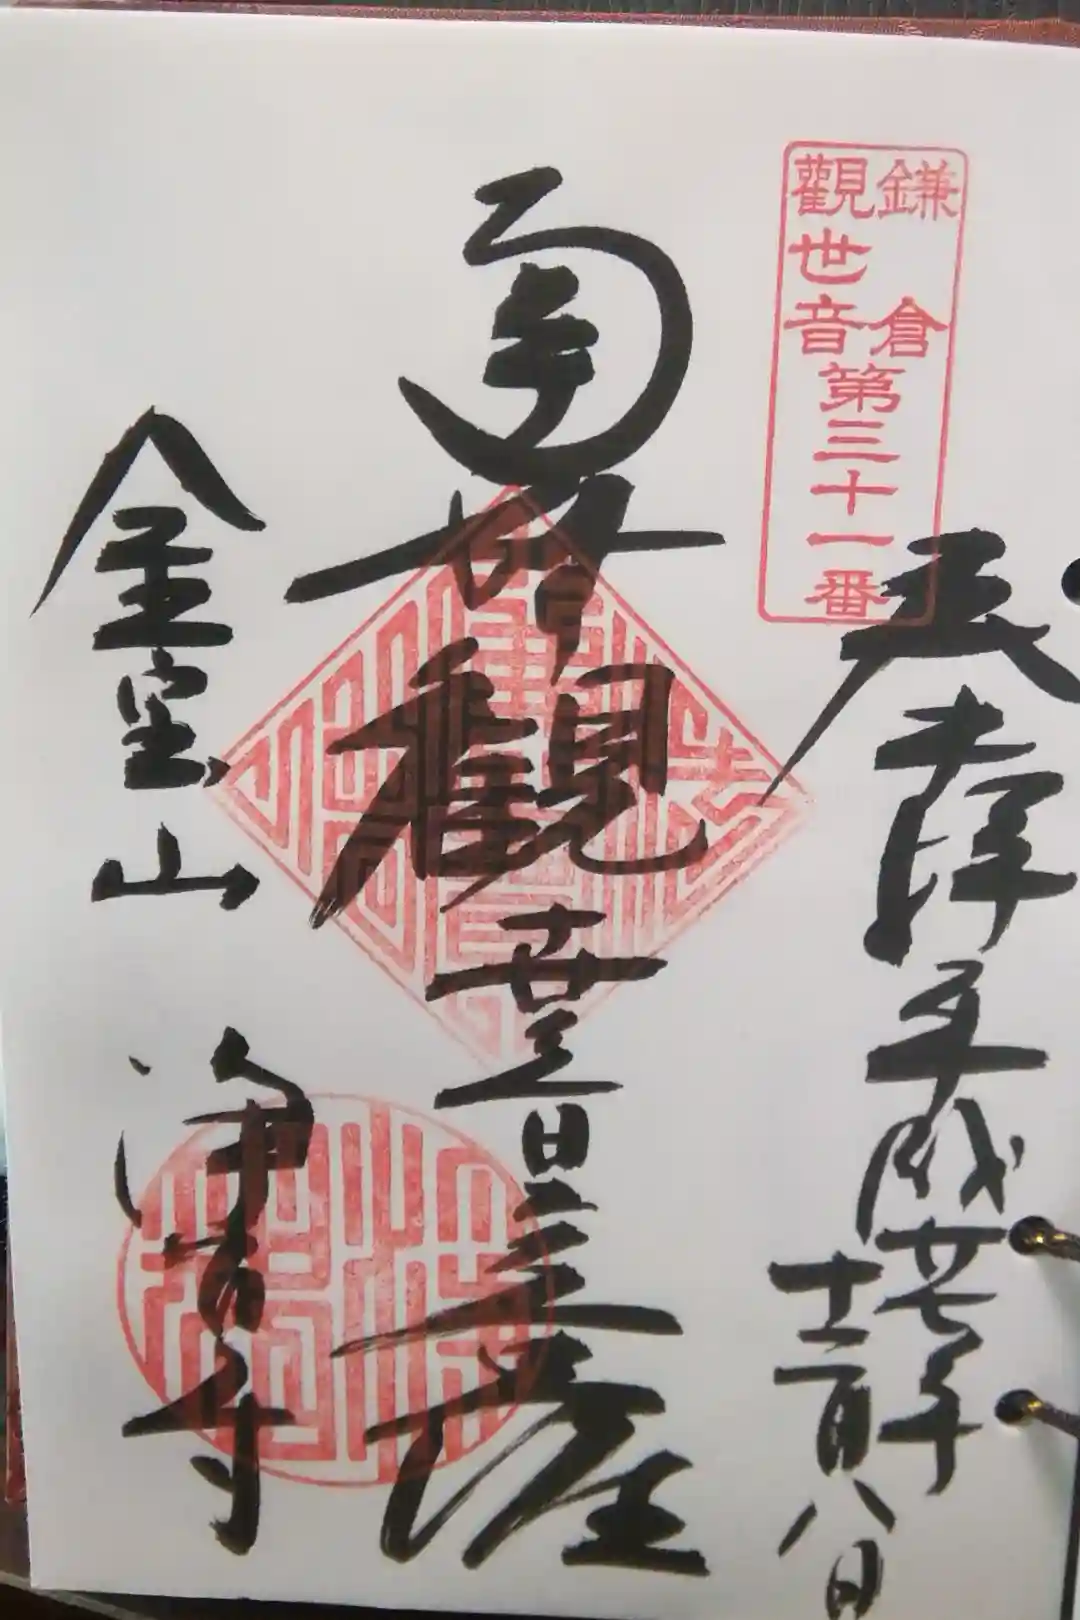 鎌倉
觀世音
第三十一番
奉拝 平成廿七年
十二月八日
南無觀世音菩薩
金宝山 淨智寺